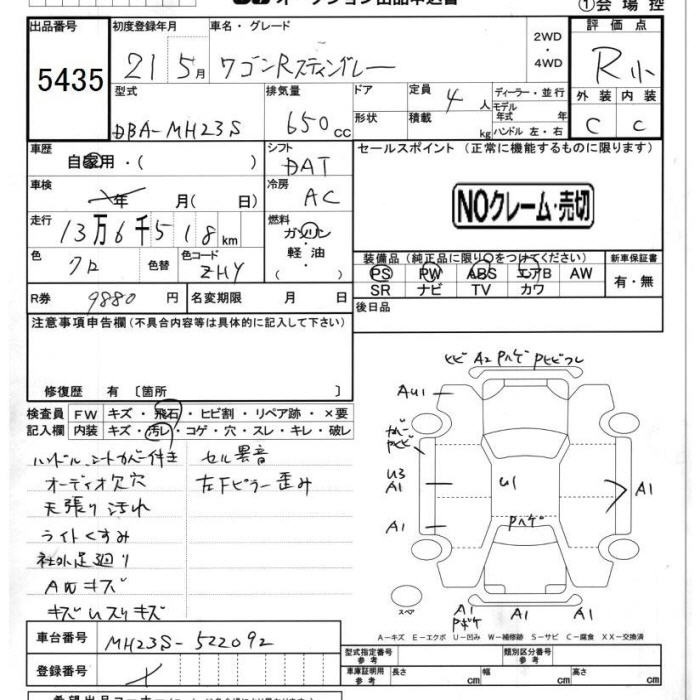 オークション出品申込書
①会場控
出品番号 初度登録年月 車名・グレード 2WD・4WD 評価点
5435 21 5月 ワゴンRスティングレー R小
型式 排気量 ドア 定員 ディーラー・並行 外装 内装
DBA-MH23S 650cc 形状 積載 4人 kg モデル年式 年 ハンドル 左・右 C C
車歴 シフト セールスポイント(正常に機能するものに限ります)
自家用・( ) DAT
車検 年 月( 日) 冷房 AC NOクレーム・売切
走行 13万6千518km 燃料 ガソリン・軽・油
色 クロ 色替 色コード ZHY
装備品(純正品に限り○をつけてください) 新車保証書
PS PW ABS エアB AW 有・無
SR ナビ TV カワ
R券 9880円 名変期限 月 日 後日品
注意事項申告欄(不具合内容等は具体的に記入して下さい)
修復歴 有〔箇所 〕
検査員 FW キズ・飛石・ヒビ割・リペア跡・×要
記入欄 内装 キズ・汚レ・コゲ・穴・スレ・キレ・破レ
ハンドル、シートカバー付き セル異音
オーディオ欠穴 左Fピラー歪み
天張り汚れ
ライトくすみ
社外足廻り
AWキズ
キズUスリキズ
ヒビ A2 Pハゲ Pヒビフレ
AU1
カバー Pヒビ
U3
A1
U1
A1
A1
Pハゲ
スペア
A1
Pボケ
A1
A−キズ E−エクボ U−凹み W−補修跡 S−サビ C−腐食 XX−交換済
車台番号 MH23S-522092
登録番号
型式指定番号 参考 類別区分番号 参考
車庫証明用 参考 長さ cm 幅 cm 高さ cm